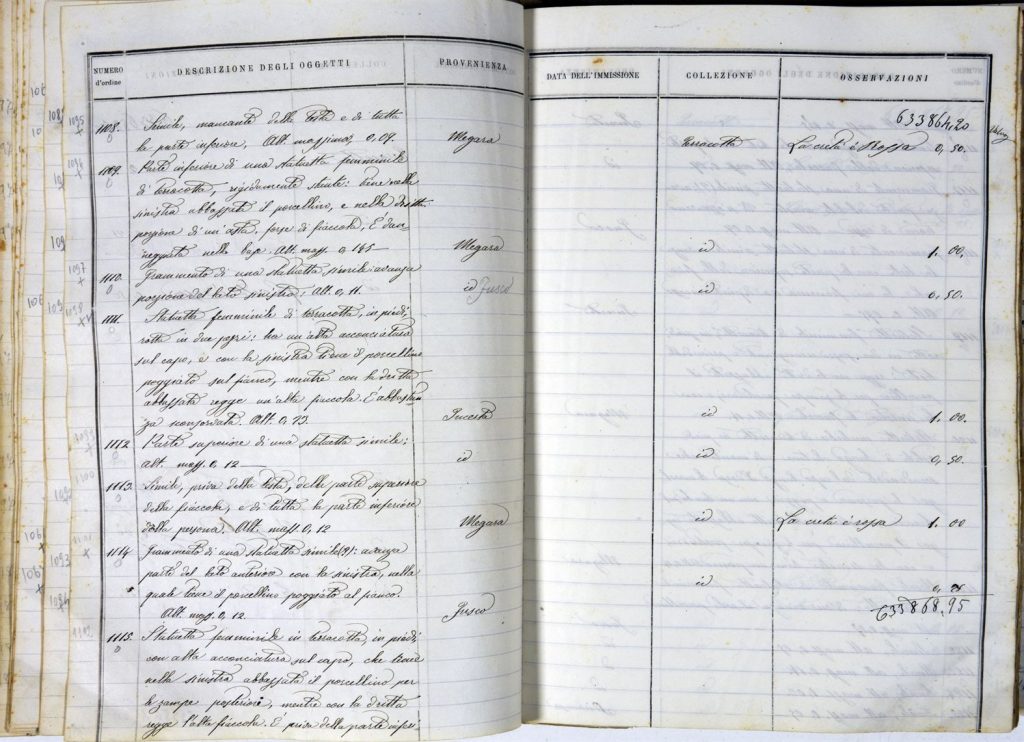 NUMERO d'ordine DESCRIZIONE DEGLI OGGETTI PROVENIENZA DATA DELL'IMMISSIONE COLLEZIONE OSSERVAZIONI
633864,20
1108. Simile, mancante della testa e di tutta
la parte inferiore. Alt. massima 0,09. Megara Terracotta La creta è rossa 0,50.
1109. Parte inferiore di una statuetta femminile
di terracotta, rigidamente stante: tiene nella
sinistra abbassata il porcellino, e nella dritta
porzione di un'asta, forse di fiaccola. È dan-
neggiata nella base. Alt. mass. 0,165 Megara id 1.00.
1110. Frammento di una statuetta simile: avanza
porzione del lato sinistro: Alt. 0,11. id Fusco id 0,50.
1111. Statuetta femminile di terracotta, in piedi,
rotta in due pezzi: ha un'alta acconciatura
sul capo, e con la sinistra tiene il porcellino
poggiato sul fianco, mentre con la dritta
abbassata regge un'alta fiaccola. È abbastan
za conservata. Alt. 0,23. id 1.00.
1112. Parte superiore di una statuetta simile:
Alt. mass. 0,12 id id 0,50.
1113. Simile, priva della testa, della parte superiore
della fiaccola, e di tutta la parte inferiore
della persona. Alt. mass. 0,12 Megara id La creta è rossa 1.00
1114. Frammento di una statuetta simile(?): avanza
parte del lato anteriore con la sinistra, nella
quale tiene il porcellino poggiato al fianco.
Alt. mass. 0,12. Fusco id
633868,95
1115. Statuetta femminile in terracotta, in piedi,
con alta acconciatura sul capo, che tiene
nella sinistra abbassata il porcellino per
le zampe posteriori, mentre con la dritta
regge l'alta fiaccola. È priva della parte infe